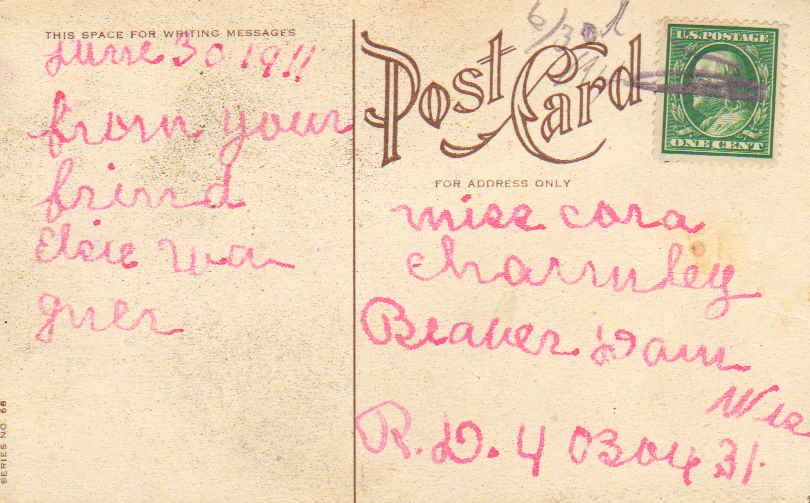 THIS SPACE FOR WRITING MESSAGES
June 30 1911
from your
frind
Elsie Wa
gner
SERIES NO. 6B
6/30
POST CARD
U.S. POSTAGE
ONE CENT
FOR ADDRESS ONLY
miss cora
charnley
Beaver Dam
Wis
R. D. 4 Box 31.